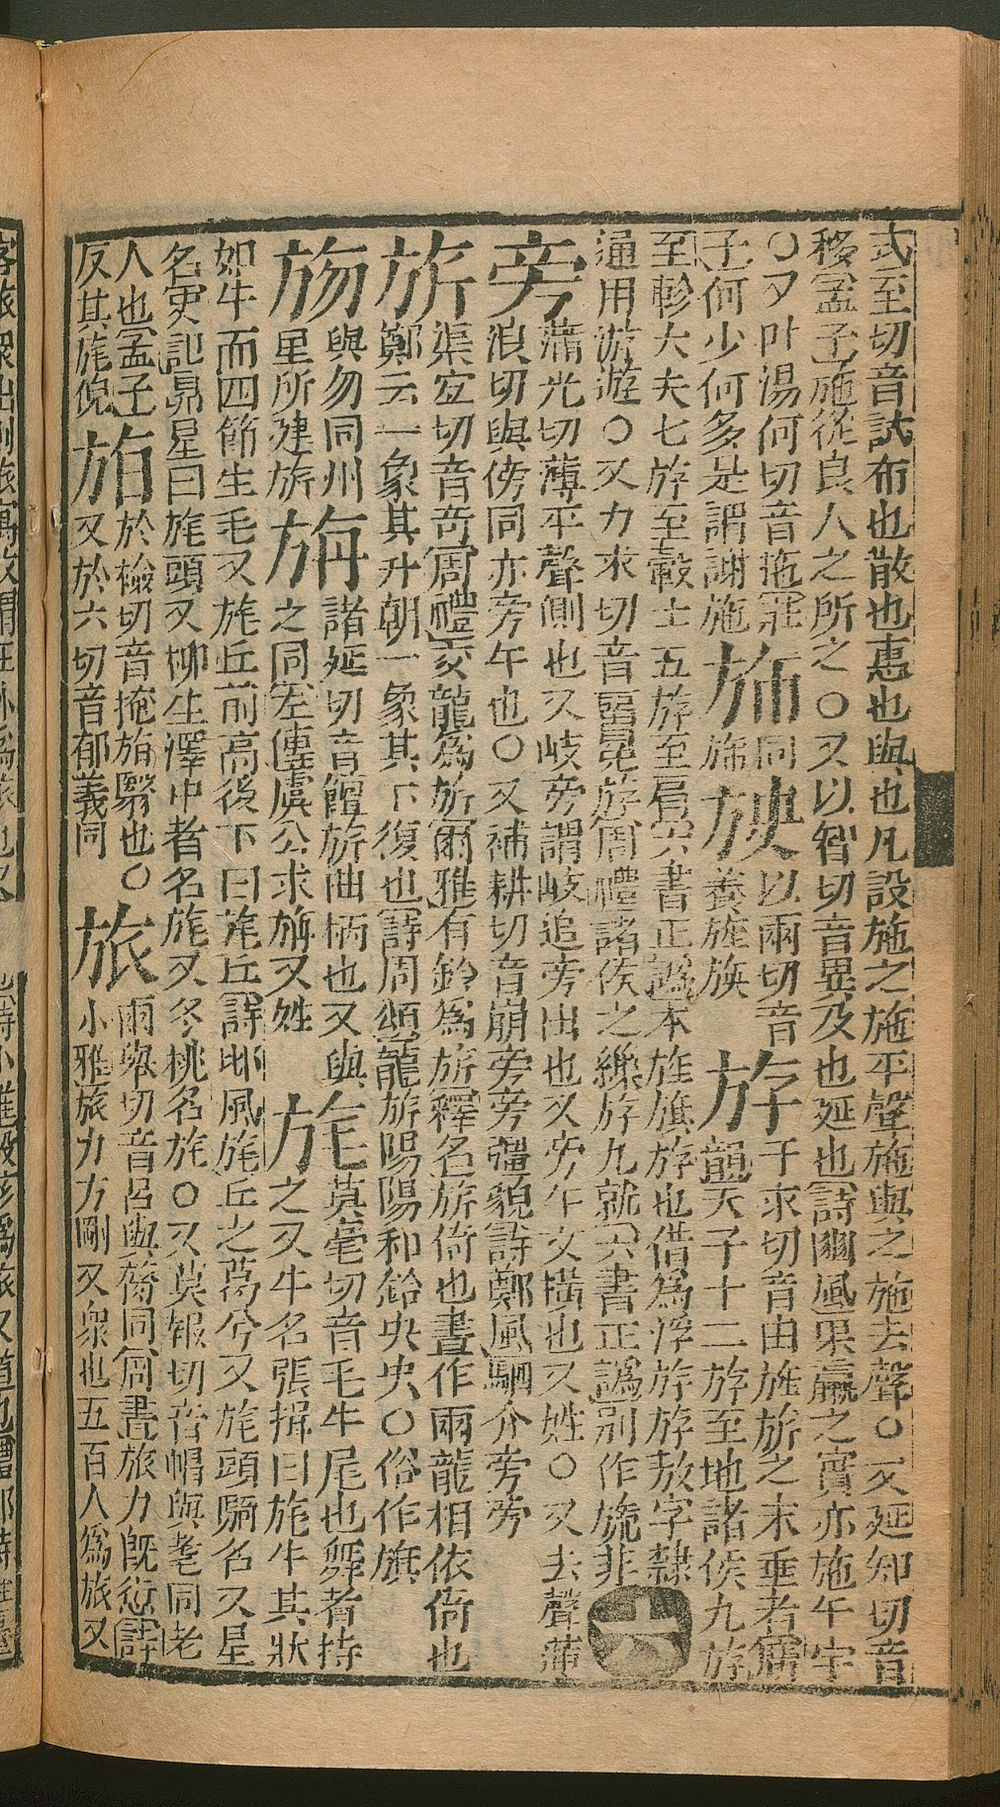 式至切音試布也散也惠也與也凡設施之施平聲施與之施去聲〇又延知切音
移孟子施從良人之所之〇又以智切音異及也延也詩豳風果臝之實亦施于宇
〇又叶湯何切音拖莊 同 以兩切音 于求切音由旌旂之末垂者
子何少何多是謂謝施 斾 旆 養旌旗 游 龍天子十二斿至地諸侯九斿
至軫大夫七斿至轂士五斿至肩六書正譌本旌旗斿也借為浮斿斿敖字隸
通用游遊〇又力求切音畱冕斿周禮諸侯之繅斿九就六書正譌別作旒非
旁 蒲光切薄平聲側也又岐旁謂岐道旁出也又旁午交橫也又姓〇又去聲蒲
浪切與傍同亦旁午也〇又補耕切音崩旁旁彊貌詩鄭風駟介旁旁
旂 渠宜切音奇周禮交龍為旂爾雅有鈴為旂釋名旂倚也畫作兩龍相依倚也
鄭云一象其升朝一象其下復也詩周頌龍旂陽陽和鈴央央〇俗作旗
㫚 與勿同州 旃 諸延切音饘旂曲柄也又與 旄 莫毫切音毛牛尾也舞者持
星所建旂 之同左傳虞公求旃又姓 之又牛名張揖曰旄牛其狀
如牛而四節生毛又旄丘前高後下曰旄丘詩邶風旄丘之葛兮又旄頭髵名又星
名史記昴星曰旄頭又柳生澤中者名旄又冬桃名旄〇又莫報切音帽與耄同老
人也孟子 於檢切音掩旃翳也〇 旅 兩舉切音呂與膂同周書旅力既愆詩
反其旄倪 又於六切音郁義同 小雅旅力方剛又眾也五百人為旅又